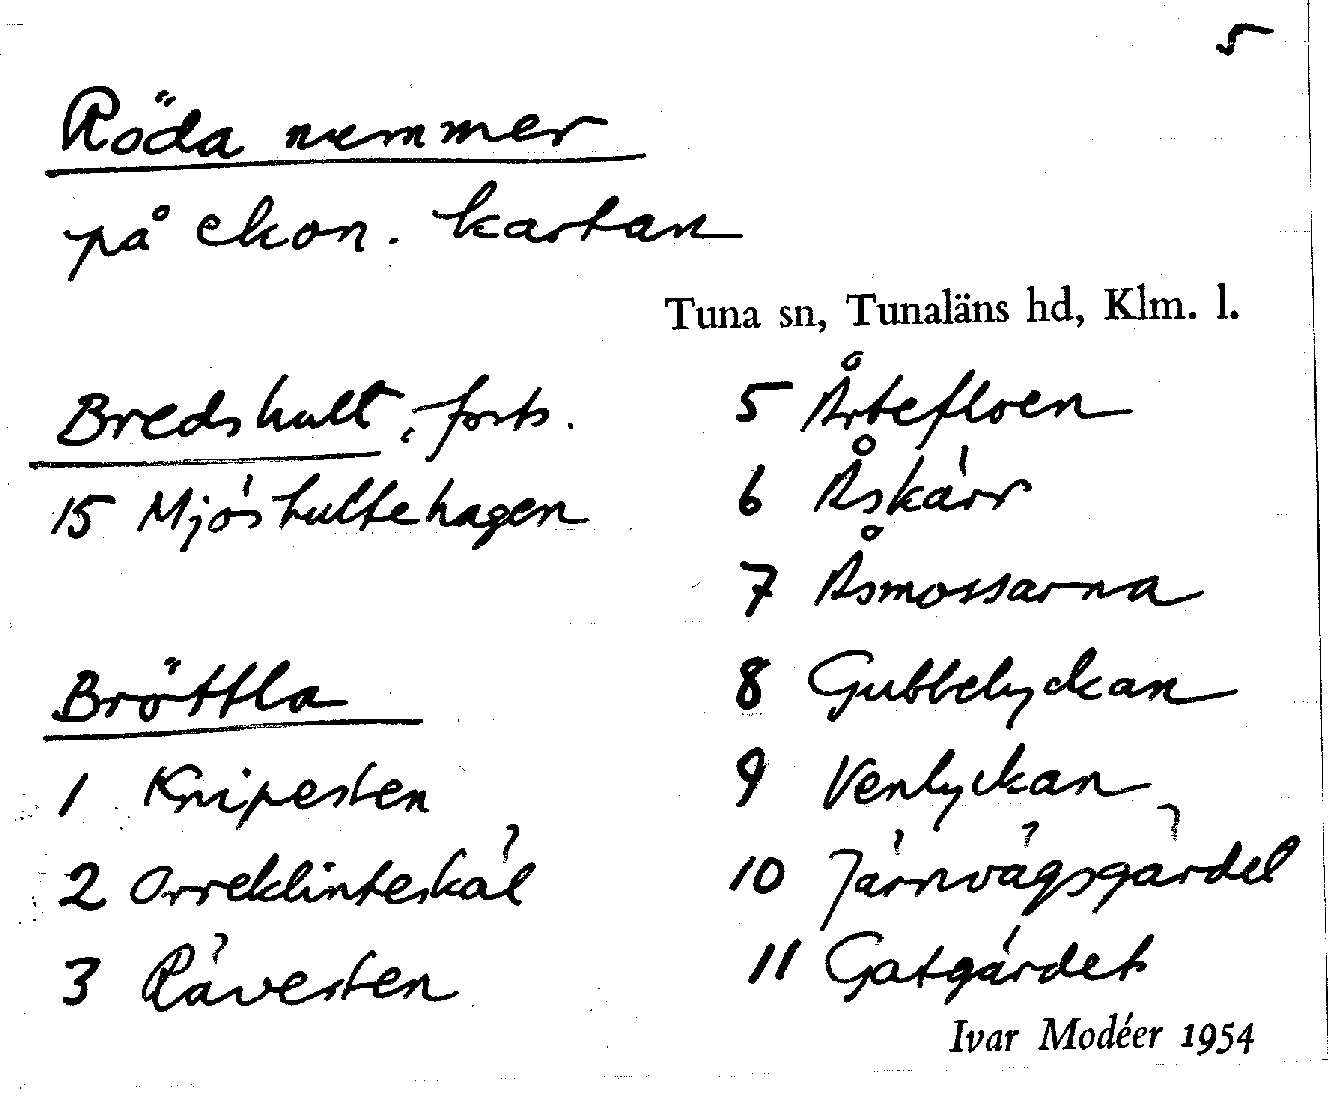 5
Röda nummer
på ekon. kartan
Tuna sn, Tunaläns hd, Klm. l.
Bredshult, forts.
15 Mjöshultehagen
Bröttla
1 Knipesten
2 Orreklinteskäl
3 Rävesten
5 Årtefloen
6 Åskärr
7 Åsmossarna
8 Gubbelyckan
9 Venlyckan
10 Järnvägsgärdel
11 Gatgärdet
Ivar Modéer 1954